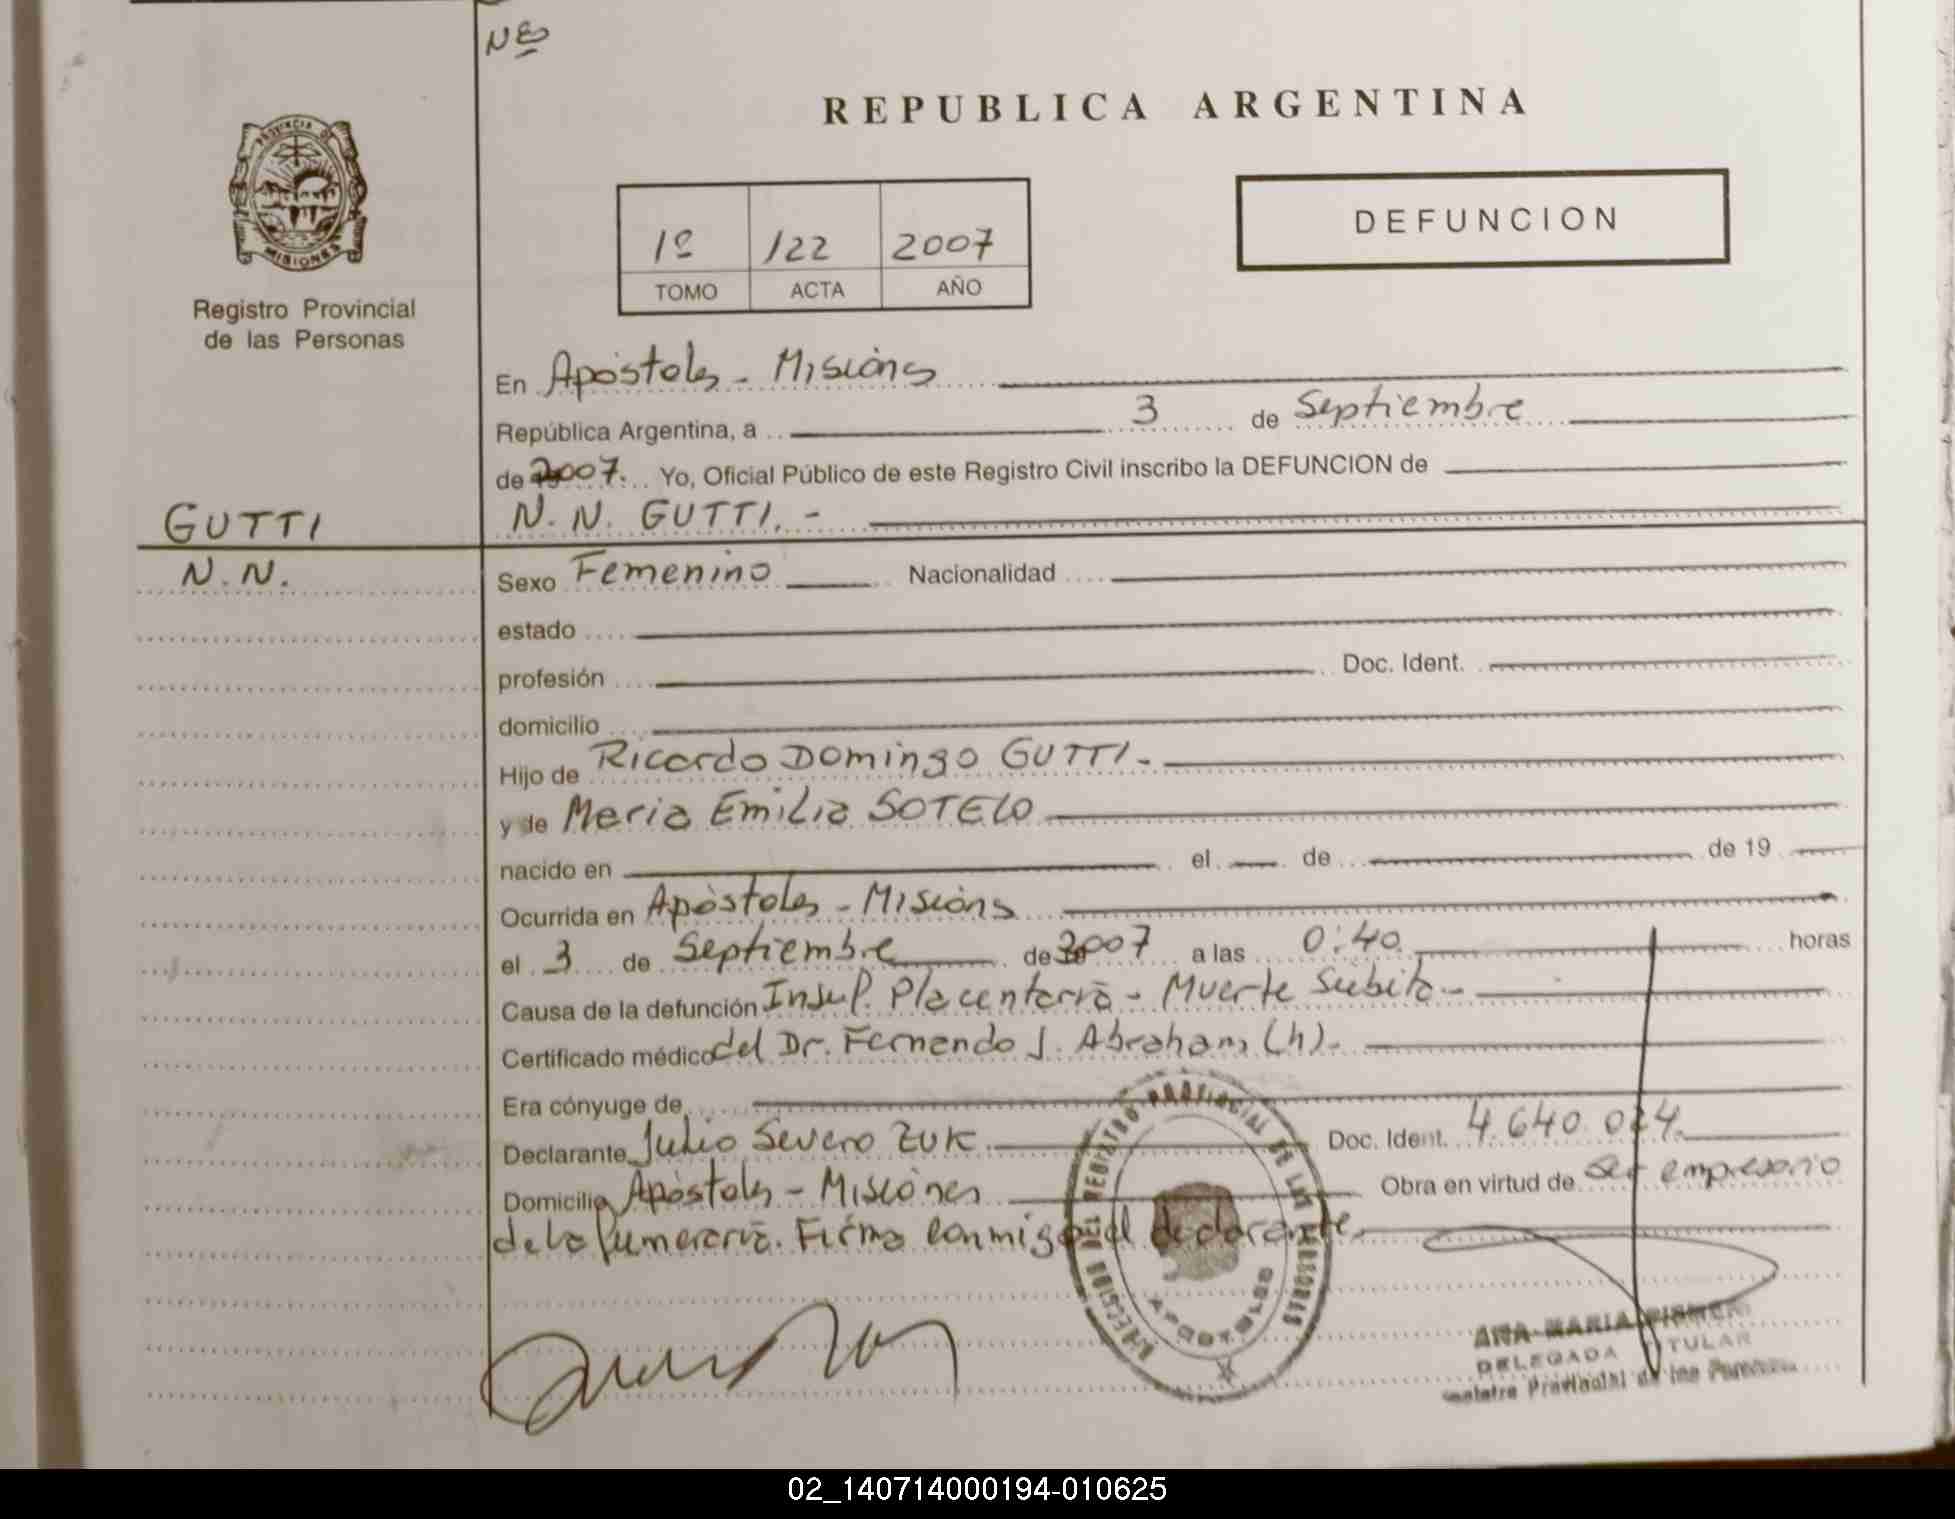 NE
REPUBLICA ARGENTINA
PROVINCIA DE
MISIONES
Registro Provincial
de las Personas
1º 122 2007
TOMO ACTA AÑO
DEFUNCION
En Apóstoles - Misiones
República Argentina, a 3 de Septiembre
de 2007. Yo, Oficial Público de este Registro Civil inscribo la DEFUNCION de
GUTTI
N. N. GUTTI. -
N. N.
Sexo Femenino Nacionalidad
estado
profesión Doc. Ident.
domicilio
Hijo de Ricardo Domingo GUTTI. -
y de Maria Emilia SOTELO
nacido en el de de 19
Ocurrida en Apóstoles - Misiones
el 3 de Septiembre de 2007 a las 0:40 horas
Causa de la defunción Insuf. Placentaria - Muerte Súbita. -
Certificado médico del Dr. Fernando J. Abraham (h). -
Era cónyuge de
Declarante Julio Severo ZUK. Doc. Ident. 4.640.024.
Domicilio Apóstoles - Misiones Obra en virtud de Ser empresario
de la funeraria. Firma conmigo el declarante.
DIRECCION DEL REGISTRO PROVINCIAL DE LAS PERSONAS
APOSTOLES
ANA MARIA
DELEGADA TITULAR
Registro Provincial de las Personas
02_140714000194-010625